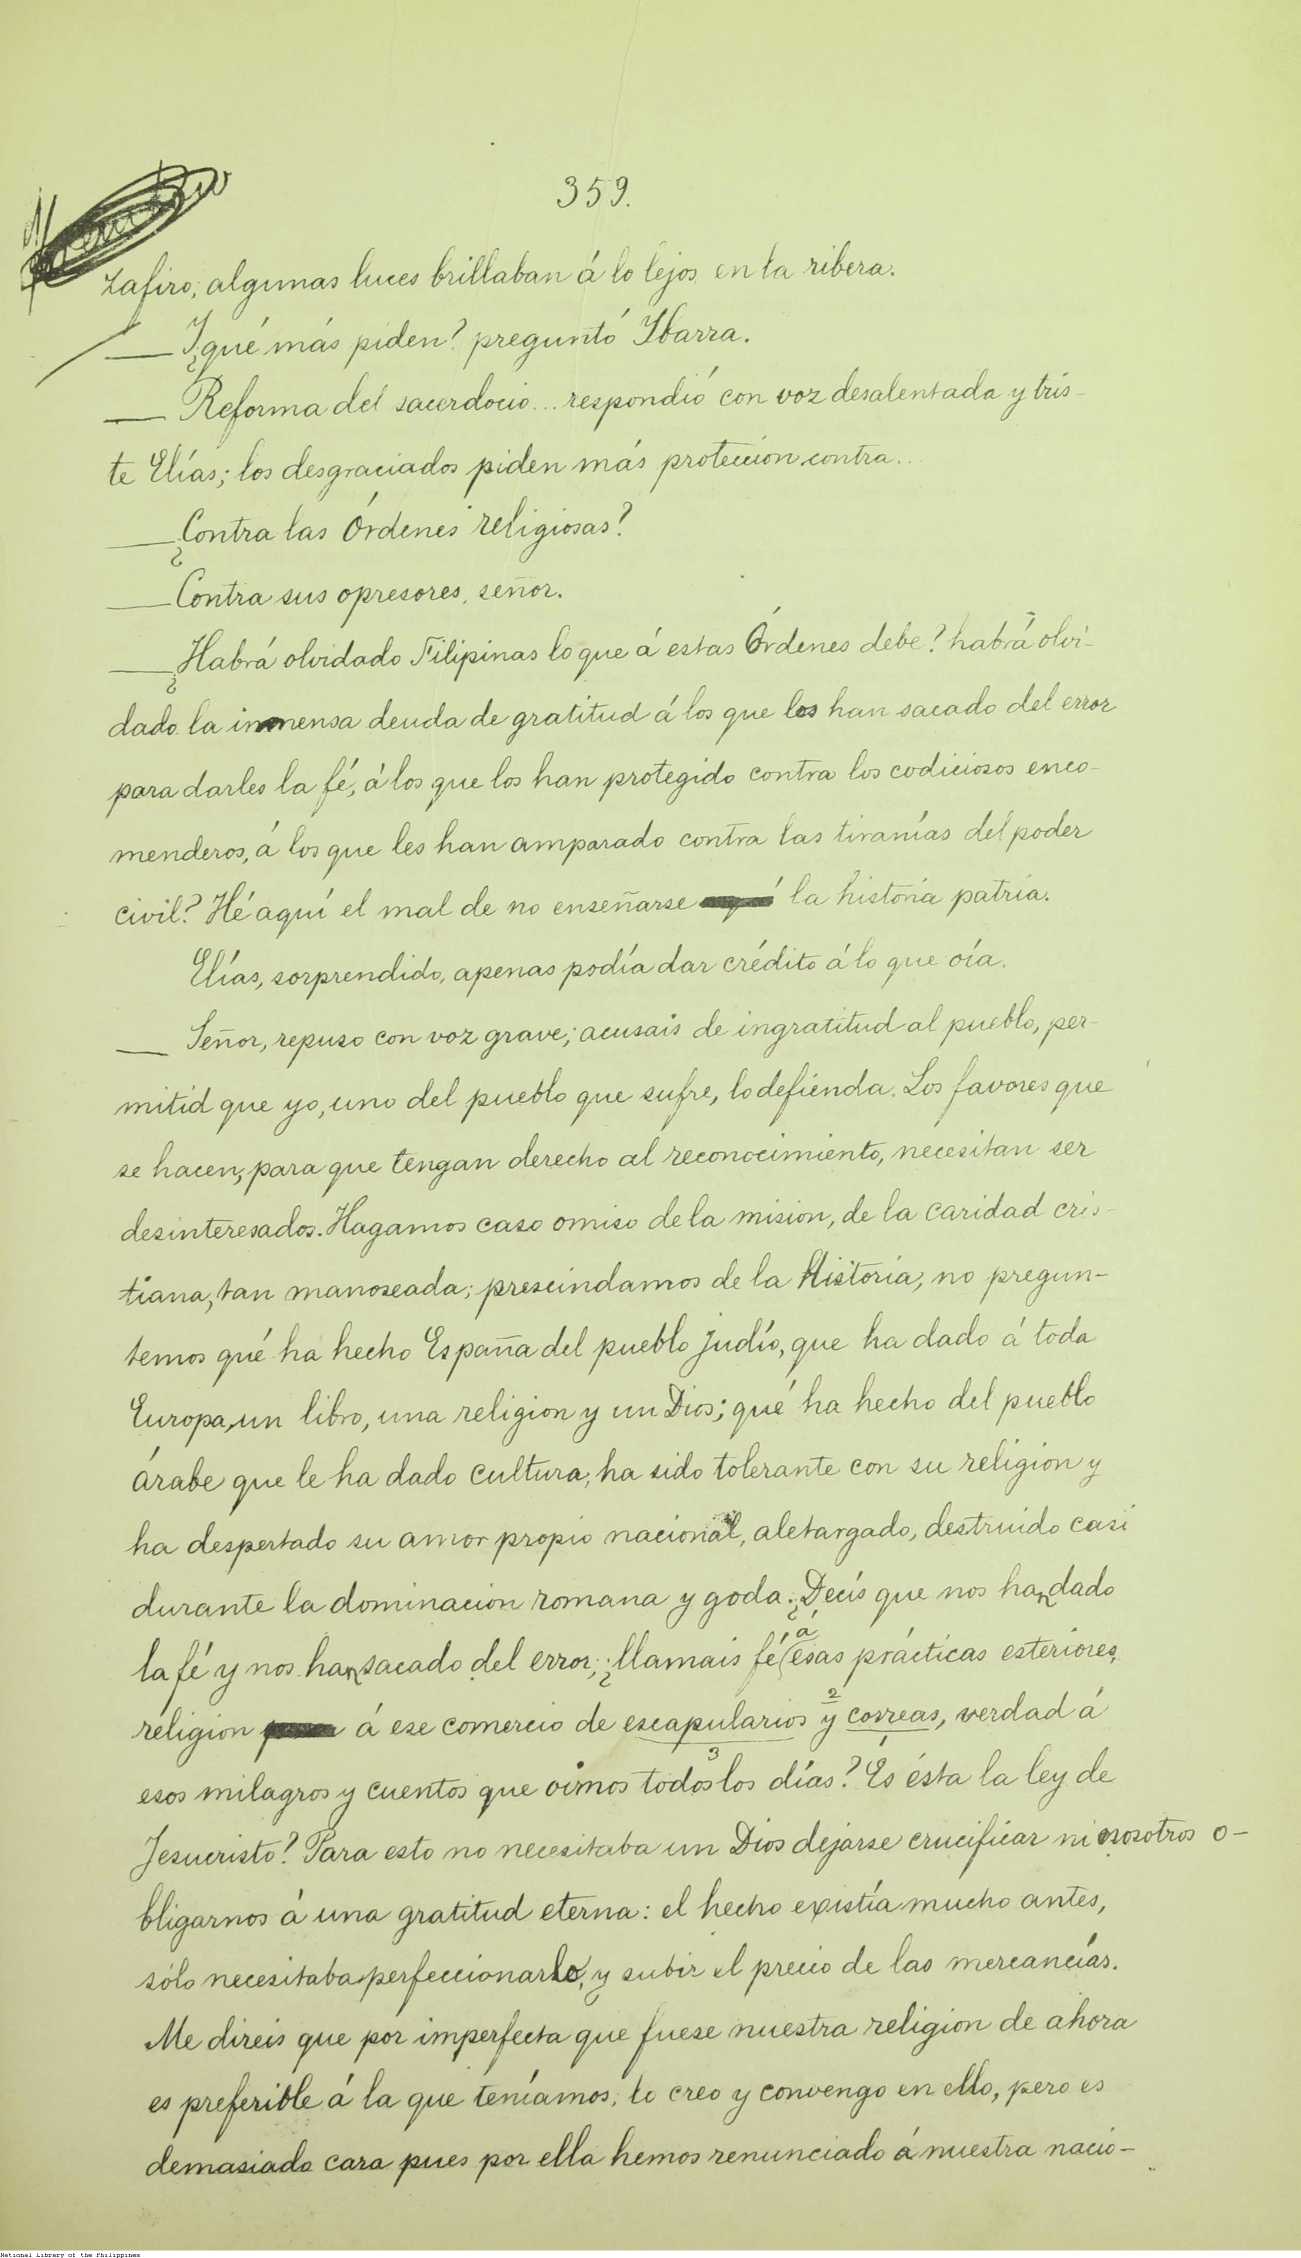 359.
zafiro; algunas luces brillaban á lo lejos en la ribera.
— ¿Y qué más piden? preguntó Ibarra.
— Reforma del sacerdocio... respondió con voz desalentada y tris-
te Elías; los desgraciados piden más proteccion contra...
— ¿Contra las Órdenes religiosas?
— Contra sus opresores, señor.
— ¿Habrá olvidado Filipinas lo que á estas Órdenes debe? habrá olvi-
dado la inmensa deuda de gratitud á los que los han sacado del error
para darles la fé, á los que los han protegido contra los codiciosos enco-
menderos, á los que les han amparado contra las tiranías del poder
civil? Hé aquí el mal de no enseñarse la historia patria.
Elías, sorprendido, apenas podía dar crédito á lo que oía.
— Señor, repuso con voz grave; acusais de ingratitud al pueblo, per-
mitid que yo, uno del pueblo que sufre, lo defienda. Los favores que
se hacen, para que tengan derecho al reconocimiento, necesitan ser
desinteresados. Hagamos caso omiso de la mision, de la caridad cris-
tiana, tan manoseada; prescindamos de la Historia, no pregun-
temos qué ha hecho España del pueblo judío, que ha dado á toda
Europa un libro, una religion y un Dios; qué ha hecho del pueblo
árabe que le ha dado cultura, ha sido tolerante con su religion y
ha despertado su amor propio nacional, aletargado, destruido casi
durante la dominacion romana y goda. ¿Decís que nos han dado
la fé y nos han sacado del error; ¿llamais fé á esas prácticas esteriores,
religion á ese comercio de escapularios y correas, verdad á
2
1
3
esos milagros y cuentos que oimos todos los días? Es ésta la ley de
Jesucristo? Para esto no necesitaba un Dios dejarse crucificar ni nosotros o-
bligarnos á una gratitud eterna: el hecho existía mucho antes,
sólo necesitaba perfeccionarlo, y subir el precio de las mercancías.
Me direis que por imperfecta que fuese nuestra religion de ahora
es preferible á la que teníamos; lo creo y convengo en ello, pero es
demasiado cara pues por ella hemos renunciado á nuestra nacio-
National Library of the Philippines